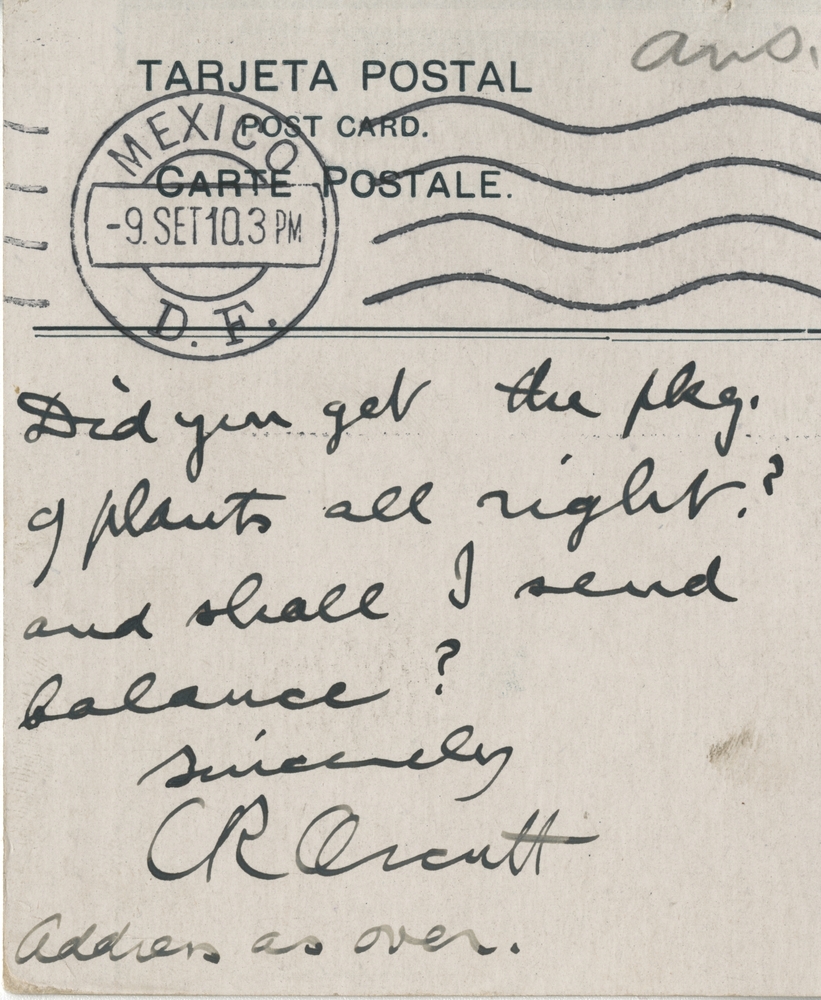 ans.
TARJETA POSTAL
POST CARD.
CARTE POSTALE.
MEXICO
-9. SET 10.3 PM
D. F.
Did you get the pkg.
of plants all right.?
and shall I send
balance ?
Sincerely
CR Orcutt
Address as over.